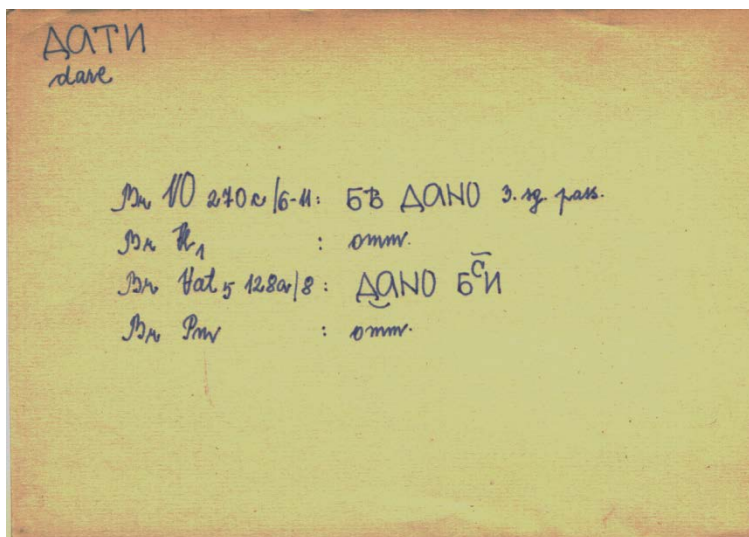 ДАТИ
dare
Br VO 270c/6-11: БВ ДАНО 3. sg. pass.
Br N₁ : omm.
Br Vat₅ 128a/8: ДАНО БСИ
Br Pm : omm.